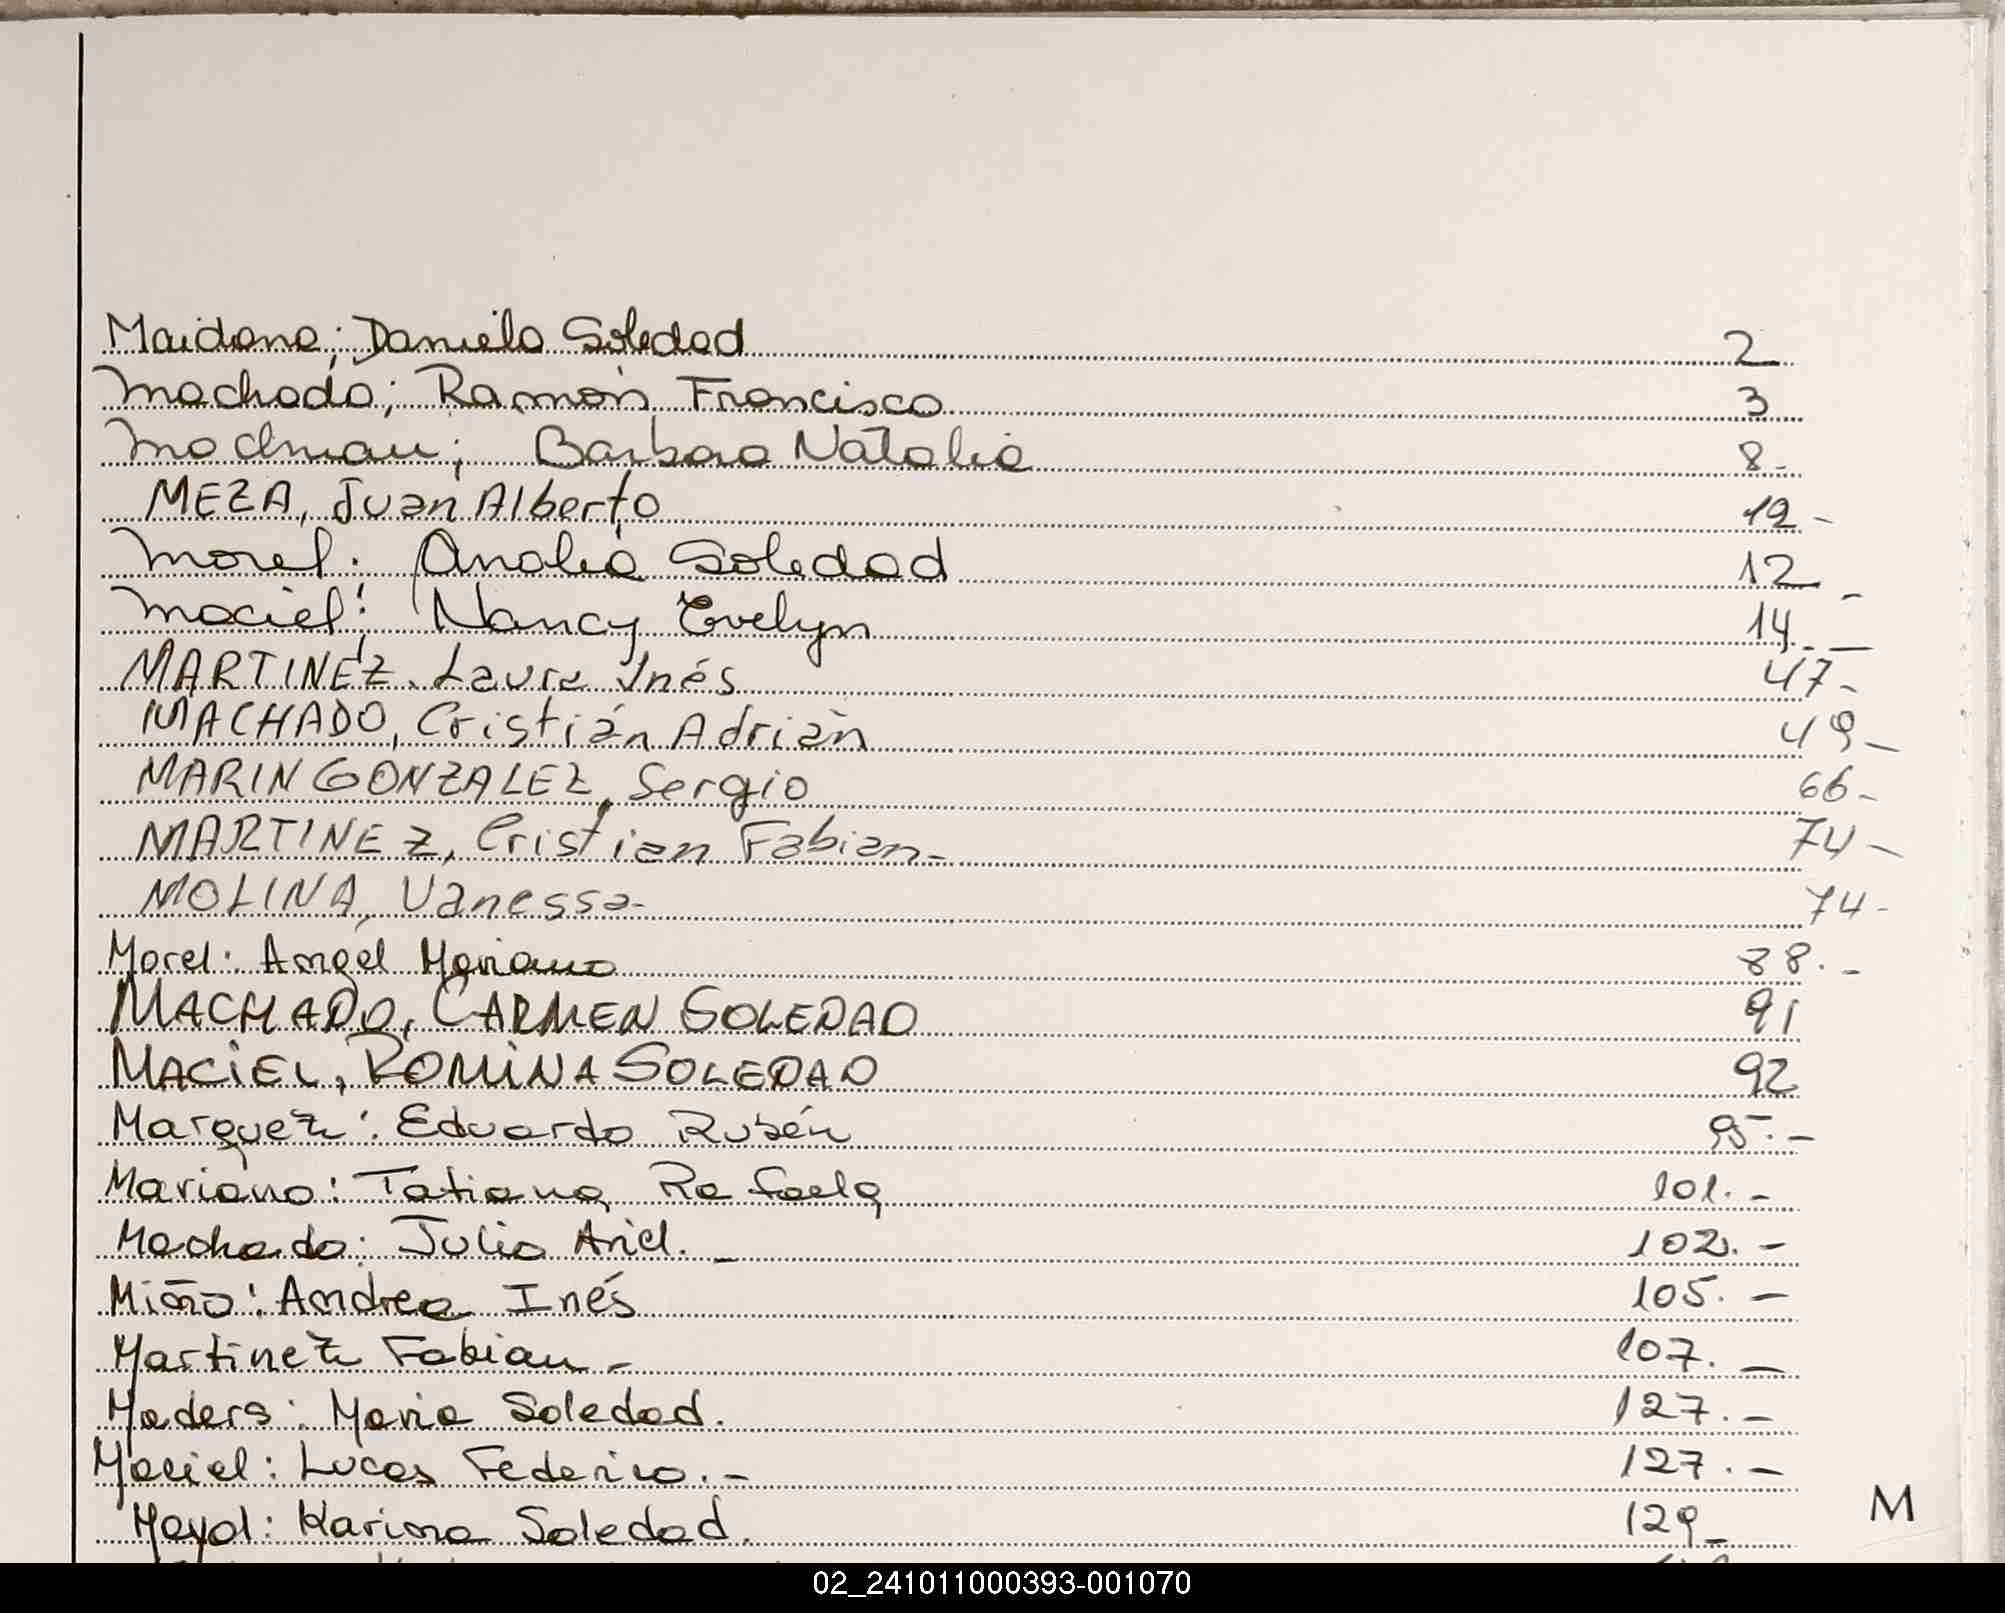 Maidana; Daniela Soledad 2
Machado; Ramón Francisco 3
; Barbara Natalia 8-
MEZA, Juan Alberto 12-
Morel: Analia Soledad 12-
Maciel: Nancy Evelyn 14.-
MARTINEZ, Laura Inés 47-
MACHADO, Cristián Adrián 49-
MARIN GONZALEZ, Sergio 66-
MARTINEZ, Cristian Fabian- 74-
MOLINA, Vanessa- 74-
Morel: Angel Mariano 88.-
MACHADO, CARMEN SOLEDAD 91
MACIEL, ROMINA SOLEDAD 92
Marquez: Eduardo Rubén 95.-
Mariano: Tatiana Rafaela 101.-
Machado: Julio Ariel.- 102.-
Miño: Andrea Inés 105.-
Martinez Fabian- 107.-
Maders: Maria Soledad. 127.-
Maciel: Lucas Federico.- 127.-
Mayol: Karina Soledad. 129-
M
02_241011000393-001070